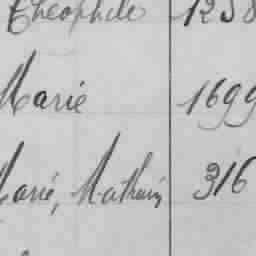 Théophile 1258
Marie 1699
Marié, Mathurin 316